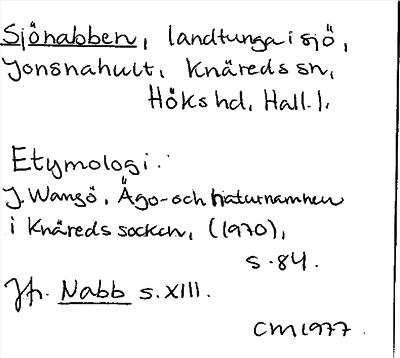 Sjönabben, landtunga i sjö,
Jonsnahult, Knäreds sn,
Höks hd, Hall. l.
Etymologi:
J. Wangö, Ägo- och naturnamnen
i Knäreds socken, (1970),
s. 84.
Jfr. Nabb s. XIII.
CM 1977